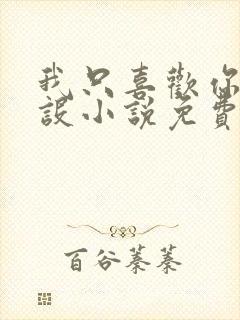 我只喜歡你
設小說免費
百谷蓁蓁